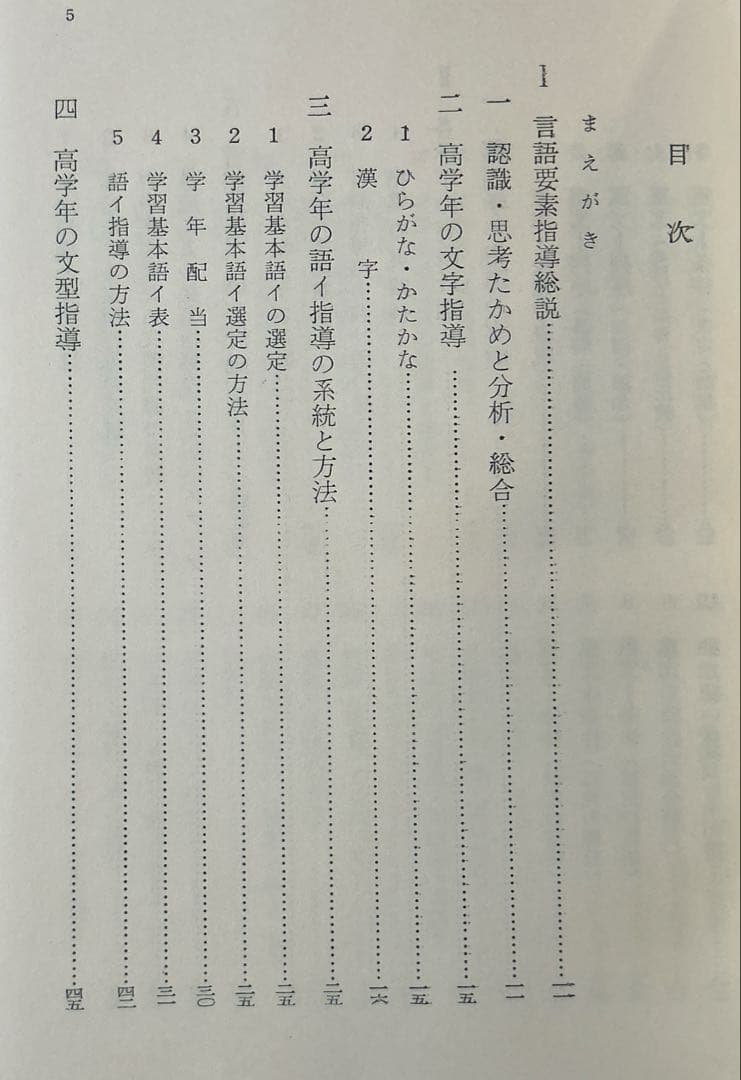 5
目次
まえがき
Ⅰ 言語要素指導総説……………一一
一 認識・思考たかめと分析・総合……………一一
二 高学年の文字指導……………一五
1 ひらがな・かたかな……………一五
2 漢字……………一六
三 高学年の語イ指導の系統と方法……………二五
1 学習基本語イの選定……………二五
2 学習基本語イ選定の方法……………二五
3 学年配当……………三〇
4 学習基本語イ表……………三一
5 語イ指導の方法……………四二
四 高学年の文型指導……………四五